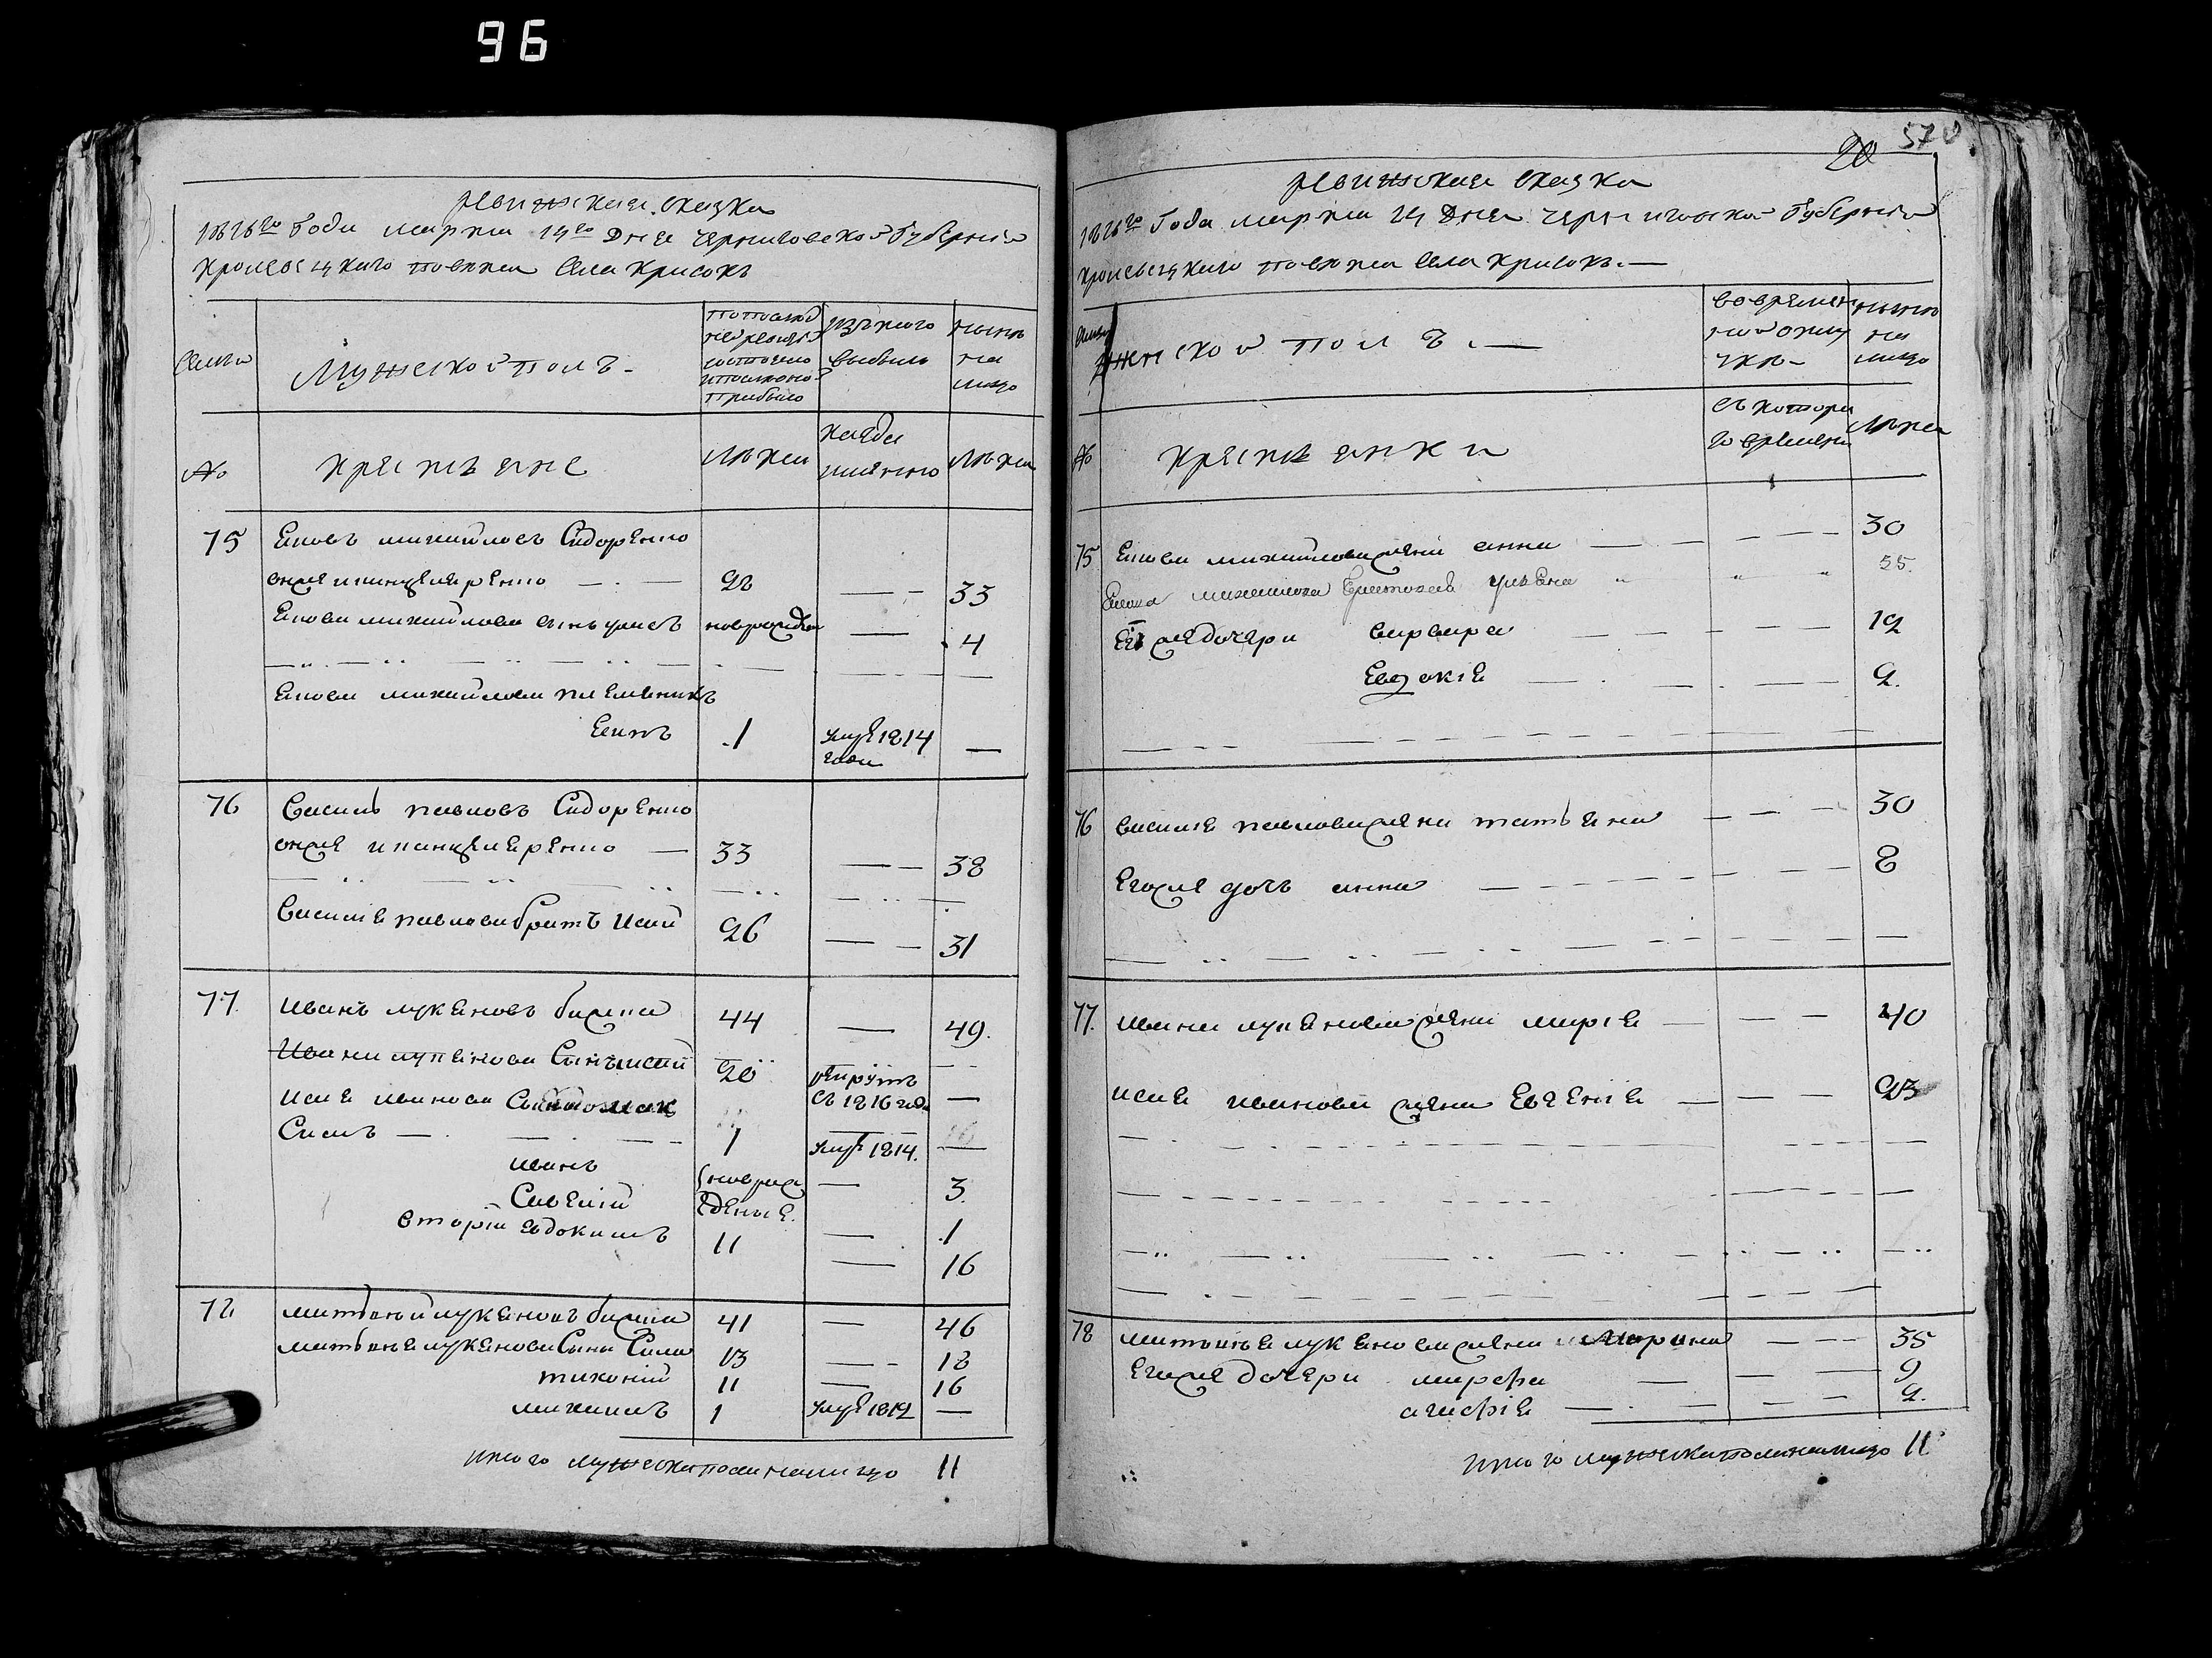 96
Ревижская сказка
1816го Года марта 14го Дня Черниговской Губернии
Кролевецкаго повета Села Крисокъ
Семьи
Мужеской полъ.
по последней ревизіи состояло и после оной прибыло
изъ того выбыло
ныне на лицо
№
крестьяне
лета
когда именно
лета
75
Яковъ михайловъ Сидоренко
онже и канцеляренко — 28 — 33
Якова михайлова сынъ новорожден — 4
Якова михайлова племенникъ
1 умре 1814 года —
76
Василь павловъ Сидоренко
онже и канцеляренко — 33 — 38
Василя павлова братъ Исай 26 — 31
77.
Иванъ лукяновъ 44 — 49.
Ивана лукянова Сынъ исай 20 рекрутъ съ 1816 года —
Исая иванова
1 умре 1814. —
иванъ новорожденые — 3.
Савелій — 1
вторій евдокимъ 11 — 16
78
матвей лукяновъ 41 — 46
матвея лукянова Сины Сила 13 — 18
тихоній 11 — 16
михаилъ 1 умре 1812 —
итого мужеска пола налицо 11
20
570
Ревижская сказка
1816го Года марта 14 Дня Черниговской Губернии
Кролевецкаго повета Села Крисокъ.—
Семьи
Женской полъ.—
во временной отлучке
ныне на лицо
№
крестьянки
съ котораго времени
лета
75
Якова михайлова жена анна — 30
Якова михайлова 55.
Его же дочери варвара — 12
Евдокія — 2.
76
Василя павлова жена татьяна — 30
Его же дочь анна — 8
77.
Ивана лукянова жена марія — 40
исая иванова жена Евгенія — 23
78
матвея лукянова жена Марина — 35
Его же дочери марфа — 9
агафія — 2.
итого женска пола налицо 11